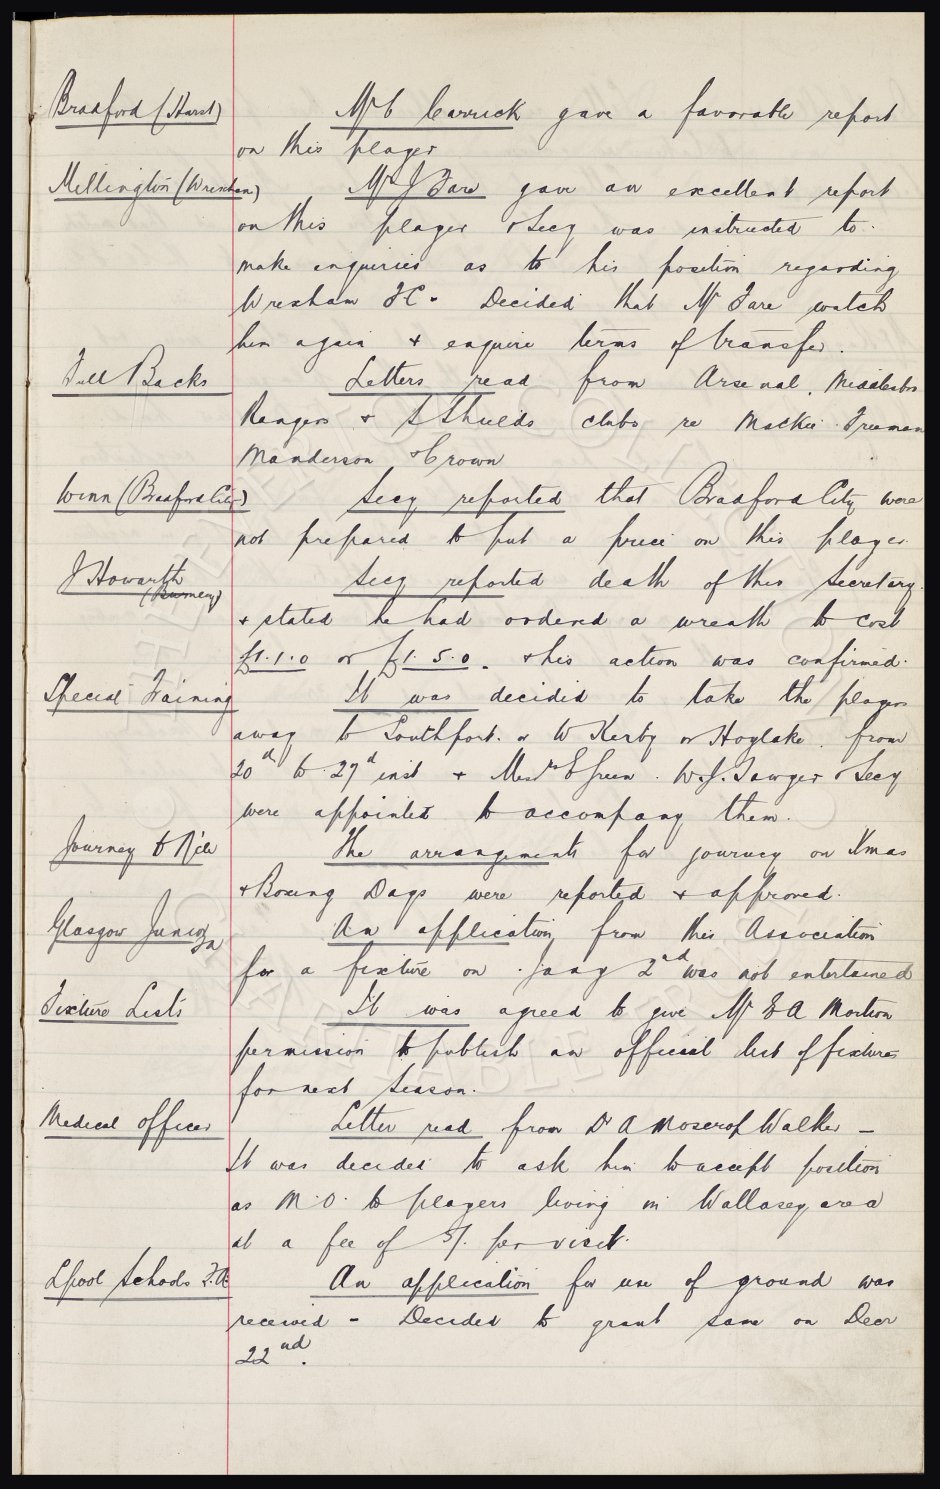 Bradford (Hurst)
Mr C Carrick gave a favorable report
on this player
Millington (Wrexham)
Mr J Fare gave an excellent report
on this player & Secy was instructed to
make enquiries as to his position regarding
Wrexham FC - Decided that Mr Fare watch
him again & enquire terms of transfer.
Full Backs
Letters read from Arsenal, Middlesbro
Rangers & S Shields clubs re Mackie Freeman
Manderson & Crown
Winn (Bradford City)
Secy reported that Bradford City were
not prepared to put a price on this player.
J Howarth
(Burnley)
Secy reported death of this Secretary
& stated he had ordered a wreath to cost
£1.1.0 or £1.5.0. & his action was confirmed.
Special Training
It was decided to take the players
away to Southport or W Kerby or Hoylake from
20th to 27th inst & Messrs E Green. W.J. Sawyer & Secy
were appointed to accompany them.
Journey to &c
The arrangements for journey on Xmas
& Boxing Days were reported & approved.
Glasgow Junior
The application from this Association
for a fixture on Jany 2nd was not entertained
Fixture Lists
It was agreed to give Mr F A Morton
permission to publish an official list of fixtures
for next Season.
Medical Officer
Letter read from Dr A Moscrop Walker -
It was decided to ask him to accept position
as M.O. to players living in Wallasey area
at a fee of 5/. per visit.
Lpool Schools F.A
An application for use of ground was
received - Decided to grant same on Decr
22nd.